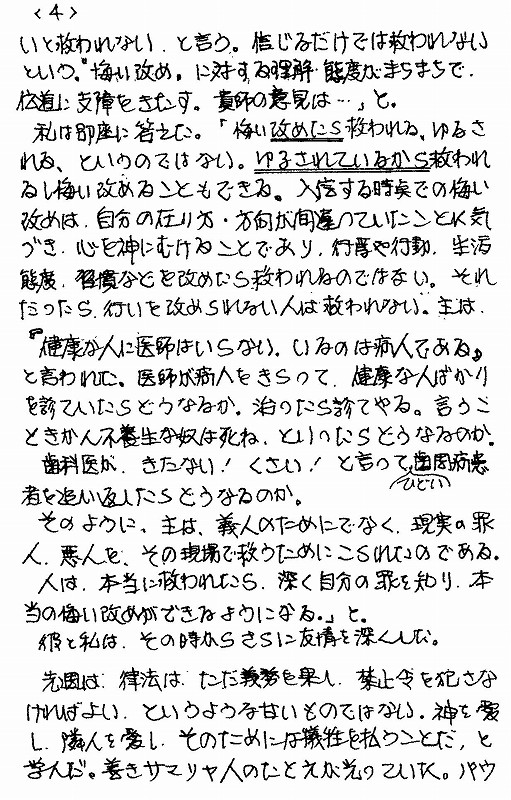 <4>
いと救われない、と言う。信じるだけでは救われない
という。"悔い改め"に対する理解・態度がまちまちで、
伝道に支障をきたす。貴師の意見は…」と。
私は即座に答えた。「悔い改めたら救われる、ゆるさ
れる、というのではない。ゆるされているから救われ
るし悔い改めることもできる。入信する時点での悔い
改めは、自分の在り方・方向が間違っていたことに気
づき、心を神にむけることであり、行為や行動、生活
態度、習慣などを改めたら救われるのではない。それ
だったら、行いを改められない人は救われない。主は、
『健康な人に医師はいらない。いるのは病人である』
と言われた。医師が病人をきらって、健康な人ばかり
を診ていたらどうなるか。治ったら診てやる。言うこ
ときかん不養生な奴は死ね、といったらどうなるのか。
歯科医が、きたない！くさい！と言って歯周病患
(ひどい)
者を追い返したらどうなるのか。
そのように、主は、義人のためにでなく、現実の罪
人、悪人を、その現場で救うためにこられたのである。
人は、本当に救われたら、深く自分の罪を知り、本
当の悔い改めができるようになる。」と。
彼と私は、その時からさらに友情を深くした。
先週は、律法は、ただ義務を果し、禁止令を犯さな
ければよい、というような甘いものではない。神を愛
し、隣人を愛し、そのためには犠牲を払うことだ、と
学んだ。善きサマリヤ人のたとえが光っていた。パウ